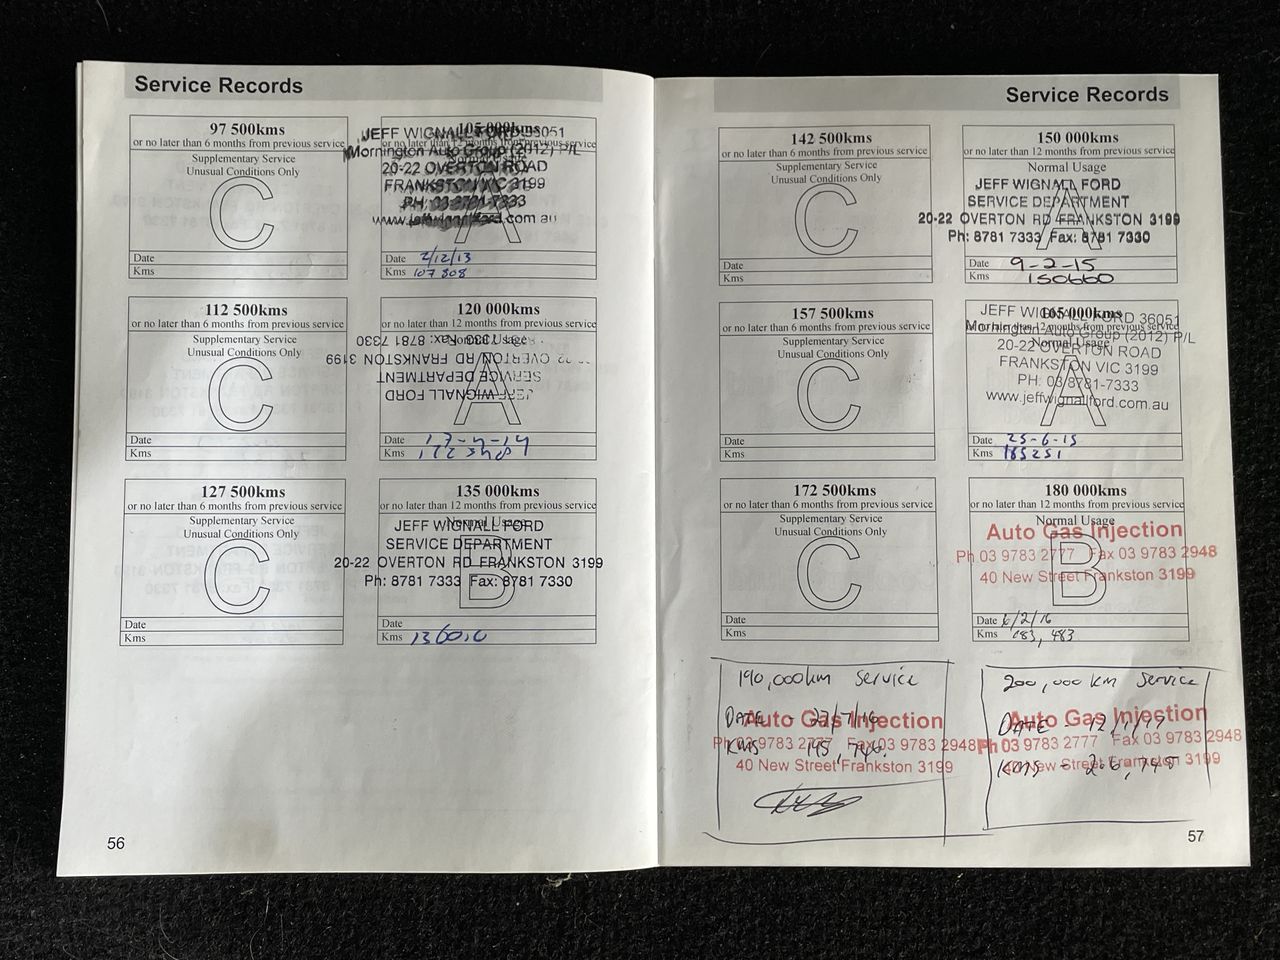 Service Records
97 500kms
or no later than 6 months from previous service
Supplementary Service
Unusual Conditions Only
C
Date
Kms
105 000kms
or no later than 12 months from previous service
JEFF WIGNALL FORD 36051
Mornington Auto Group (2012) P/L
20-22 OVERTON ROAD
FRANKSTON VIC 3199
PH: 03 8781-7333
www.jeffwignallford.com.au
A
Date 2/12/13
Kms 107 808
112 500kms
or no later than 6 months from previous service
Supplementary Service
Unusual Conditions Only
C
Date
Kms
120 000kms
or no later than 12 months from previous service
Normal Usage
JEFF WIGNALL FORD
SERVICE DEPARTMENT
OVERTON RD FRANKSTON 3199
8781 7333 Fax: 8781 7330
A
Date 17-4-14
Kms
127 500kms
or no later than 6 months from previous service
Supplementary Service
Unusual Conditions Only
C
Date
Kms
135 000kms
or no later than 12 months from previous service
Normal Usage
JEFF WIGNALL FORD
SERVICE DEPARTMENT
20-22 OVERTON RD FRANKSTON 3199
Ph: 8781 7333 Fax: 8781 7330
B
Date
Kms
56
Service Records
142 500kms
or no later than 6 months from previous service
Supplementary Service
Unusual Conditions Only
C
Date
Kms
150 000kms
or no later than 12 months from previous service
Normal Usage
JEFF WIGNALL FORD
SERVICE DEPARTMENT
20-22 OVERTON RD FRANKSTON 3199
Ph: 8781 7333 Fax: 8781 7330
A
Date 9-2-15
Kms 150660
157 500kms
or no later than 6 months from previous service
Supplementary Service
Unusual Conditions Only
C
Date
Kms
165 000kms
or no later than 12 months from previous service
Normal Usage
JEFF WIGNALL FORD 36051
Mornington Auto Group (2012) P/L
20-22 OVERTON ROAD
FRANKSTON VIC 3199
PH: 03 8781-7333
www.jeffwignallford.com.au
A
Date 25-6-15
Kms 165251
172 500kms
or no later than 6 months from previous service
Supplementary Service
Unusual Conditions Only
C
Date
Kms
180 000kms
or no later than 12 months from previous service
Normal Usage
Auto Gas Injection
Ph 03 9783 2777 Fax 03 9783 2948
40 New Street Frankston 3199
B
Date 6/2/16
Kms 183,483
190,000km Service
DATE - 27/7/16
KMS 195,746.
Auto Gas Injection
Ph 03 9783 2777 Fax 03 9783 2948
40 New Street Frankston 3199
200,000 KM Service
DATE - 12/1/17
KMS - 206,745
Auto Gas Injection
Ph 03 9783 2777 Fax 03 9783 2948
40 New Street Frankston 3199
57